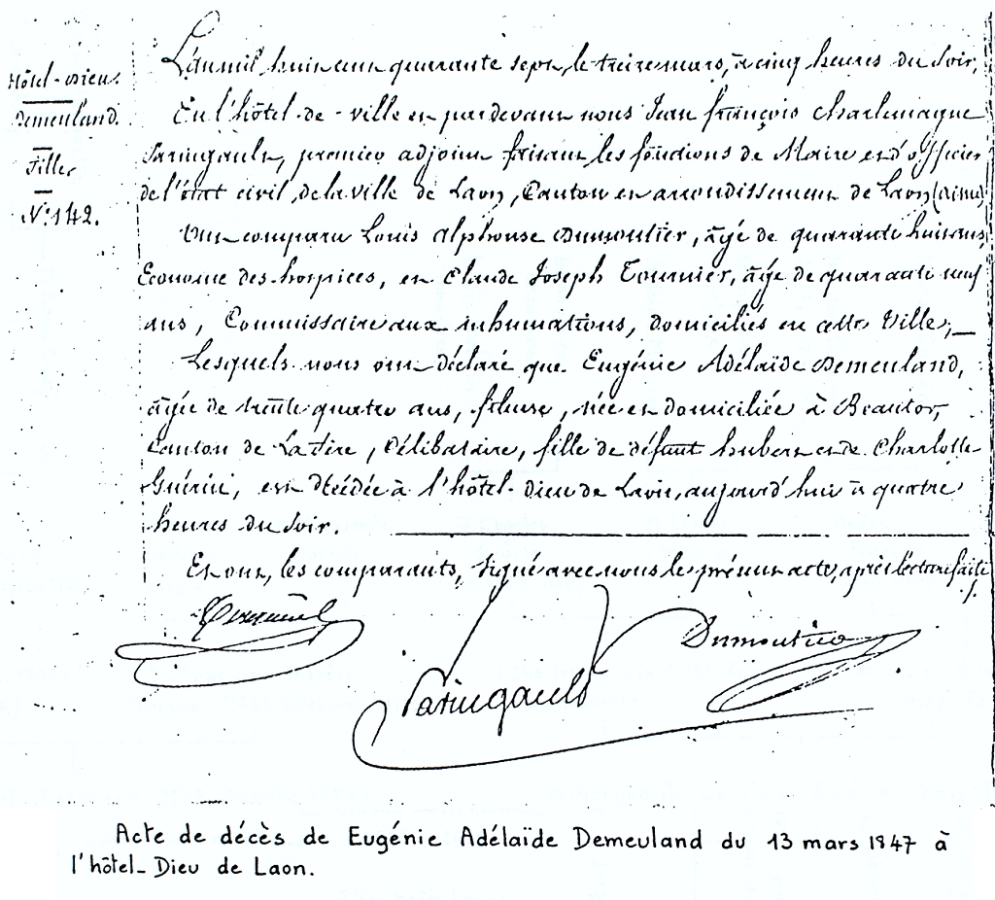 Hôtel-Dieu.
Demeuland.
Fille
N° 142.
L'an mil huit cent quarante sept, le treize mars, à cinq heures du soir,
En l'hôtel-de-ville et pardevant nous Jean françois Charlemagne
Saringault, premier adjoint faisant les fonctions de Maire et d'officier
de l'état civil, de la ville de Laon, Canton et arrondissement de Laon (aisne)
Ont comparu Louis alphonse Dumoutier, âgé de quarante huit ans,
Econome des hospices, et Claude Joseph Tournier, âgé de quarante neuf
ans, Commissaire aux inhumations, domiciliés en cette Ville;
Lesquels nous ont déclaré que Eugénie Adélaïde Demeuland,
âgée de trente quatre ans, fileuse, née et domiciliée à Beautor,
Canton de La fère, Célibataire, fille de défunt hubert et de Charlotte
Guérin, est décédée à l'hôtel-Dieu de Laon, aujourd'hui à quatre
heures du soir.
Et ont, les comparants, signé avec nous le présent acte, après lecture faite
Saringault
Dumoutier
Acte de décès de Eugénie Adélaïde Demeuland du 13 mars 1847 à
l'hôtel-Dieu de Laon.